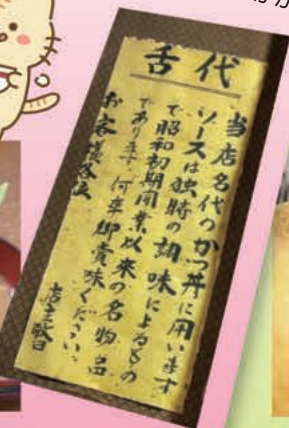 舌代
当店名代のかつ丼に用います
ソースは独特の調味によるもの
で昭和初期開業以来の名物品
であります。何卒御賞味ください。
お客様各位
店主敬白